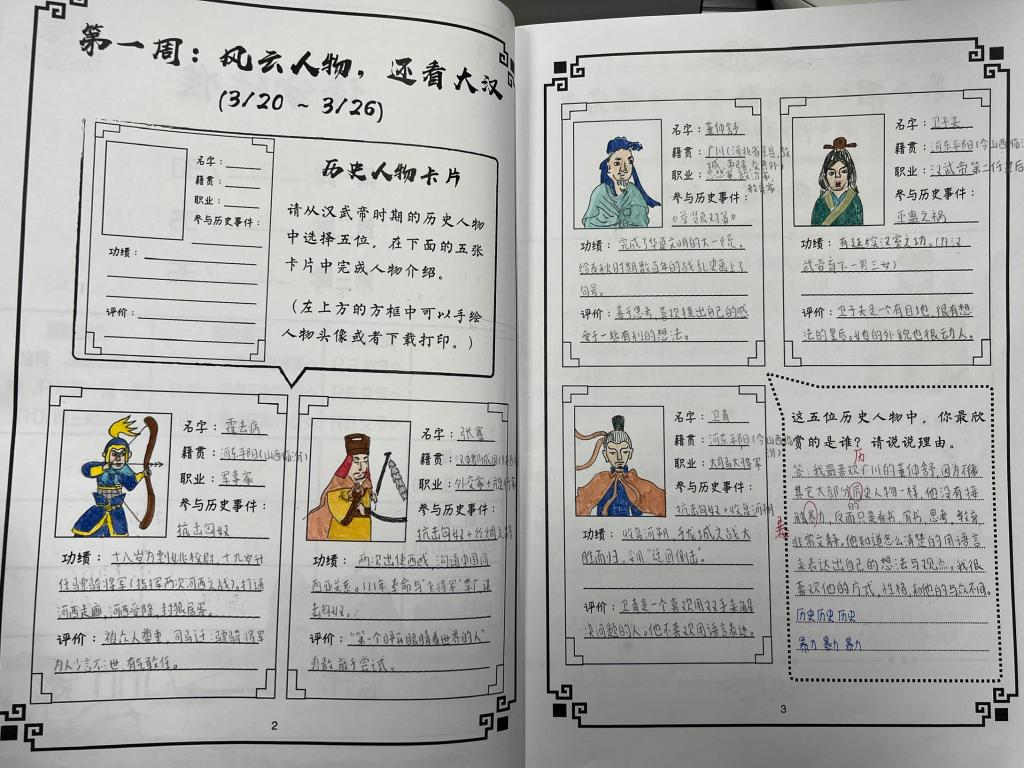 第一周：风云人物，还看大汉
(3/20 ~ 3/26)
名字：
籍贯：
职业：
参与历史事件：
功绩：
评价：
历史人物卡片
请从汉武帝时期的历史人物
中选择五位，在下面的五张
卡片中完成人物介绍。
（左上方的方框中可以手绘
人物头像或者下载打印。）
名字：霍去病
籍贯：河东平阳(山西临汾)
职业：军事家
参与历史事件：
抗击匈奴
功绩：十八岁为剽姚校尉，十九岁升
任骠骑将军(指挥两次河西之战)。打通
河西走廊，河西受降，封狼居胥。
评价：
司马迁：骠骑将军
为人少言不泄，有气敢任。
名字：张骞
籍贯：汉中郡城固
职业：外交家+
参与历史事件：
抗击匈奴+丝绸之路
功绩：两次出使西域，沟通中国同
西亚关系。
奉命与"飞将军"李广
击匈奴。
评价："第一个睁开眼睛看世界的人"
勇敢敢于尝试。
2
名字：董仲舒
籍贯：广川(河北省景县,
职业：思想家,政治家,
教育家
参与历史事件：
《举贤良对策》
功绩：完成了华夏文明的大一统，
给春秋时期数百年的战乱史画上了
句号。
评价：善于思考，喜欢提出自己的感
受于一些有利的想法。
名字：卫子夫
籍贯：河东平阳(今山西临汾
职业：汉武帝第二任皇后
参与历史事件：
巫蛊之祸
功绩：有延续汉室之功。(为汉
武帝育下一男三女)
评价：卫子夫是个有目地，很有想
法的皇后。她的外貌也很动人。
名字：卫青
籍贯：河东平阳(今山西临汾)
职业：大司马大将军
参与历史事件：
抗击匈奴+收复河朔
功绩：收复河朔，于龙城之战大
胜而归，采用"迂回侧击"
评价：卫青是一个喜欢用双手来解
决问题的人。他不喜欢用语言表达。
这五位历史人物中，你最欣
赏的是谁？请说说理由。
历
答：我最喜欢广川的董仲舒，因为不像
其它大部分历史人物一样，他没有接
的
触暴力，反而只是看书，写书，思考，教育
暴
非常文静。他知道怎么清楚的用语言
来表达出自己的想法与观点。我很
喜欢他的方式，性格，和他的与众不同。
历史 历史 历史
暴力 暴力 暴力
3